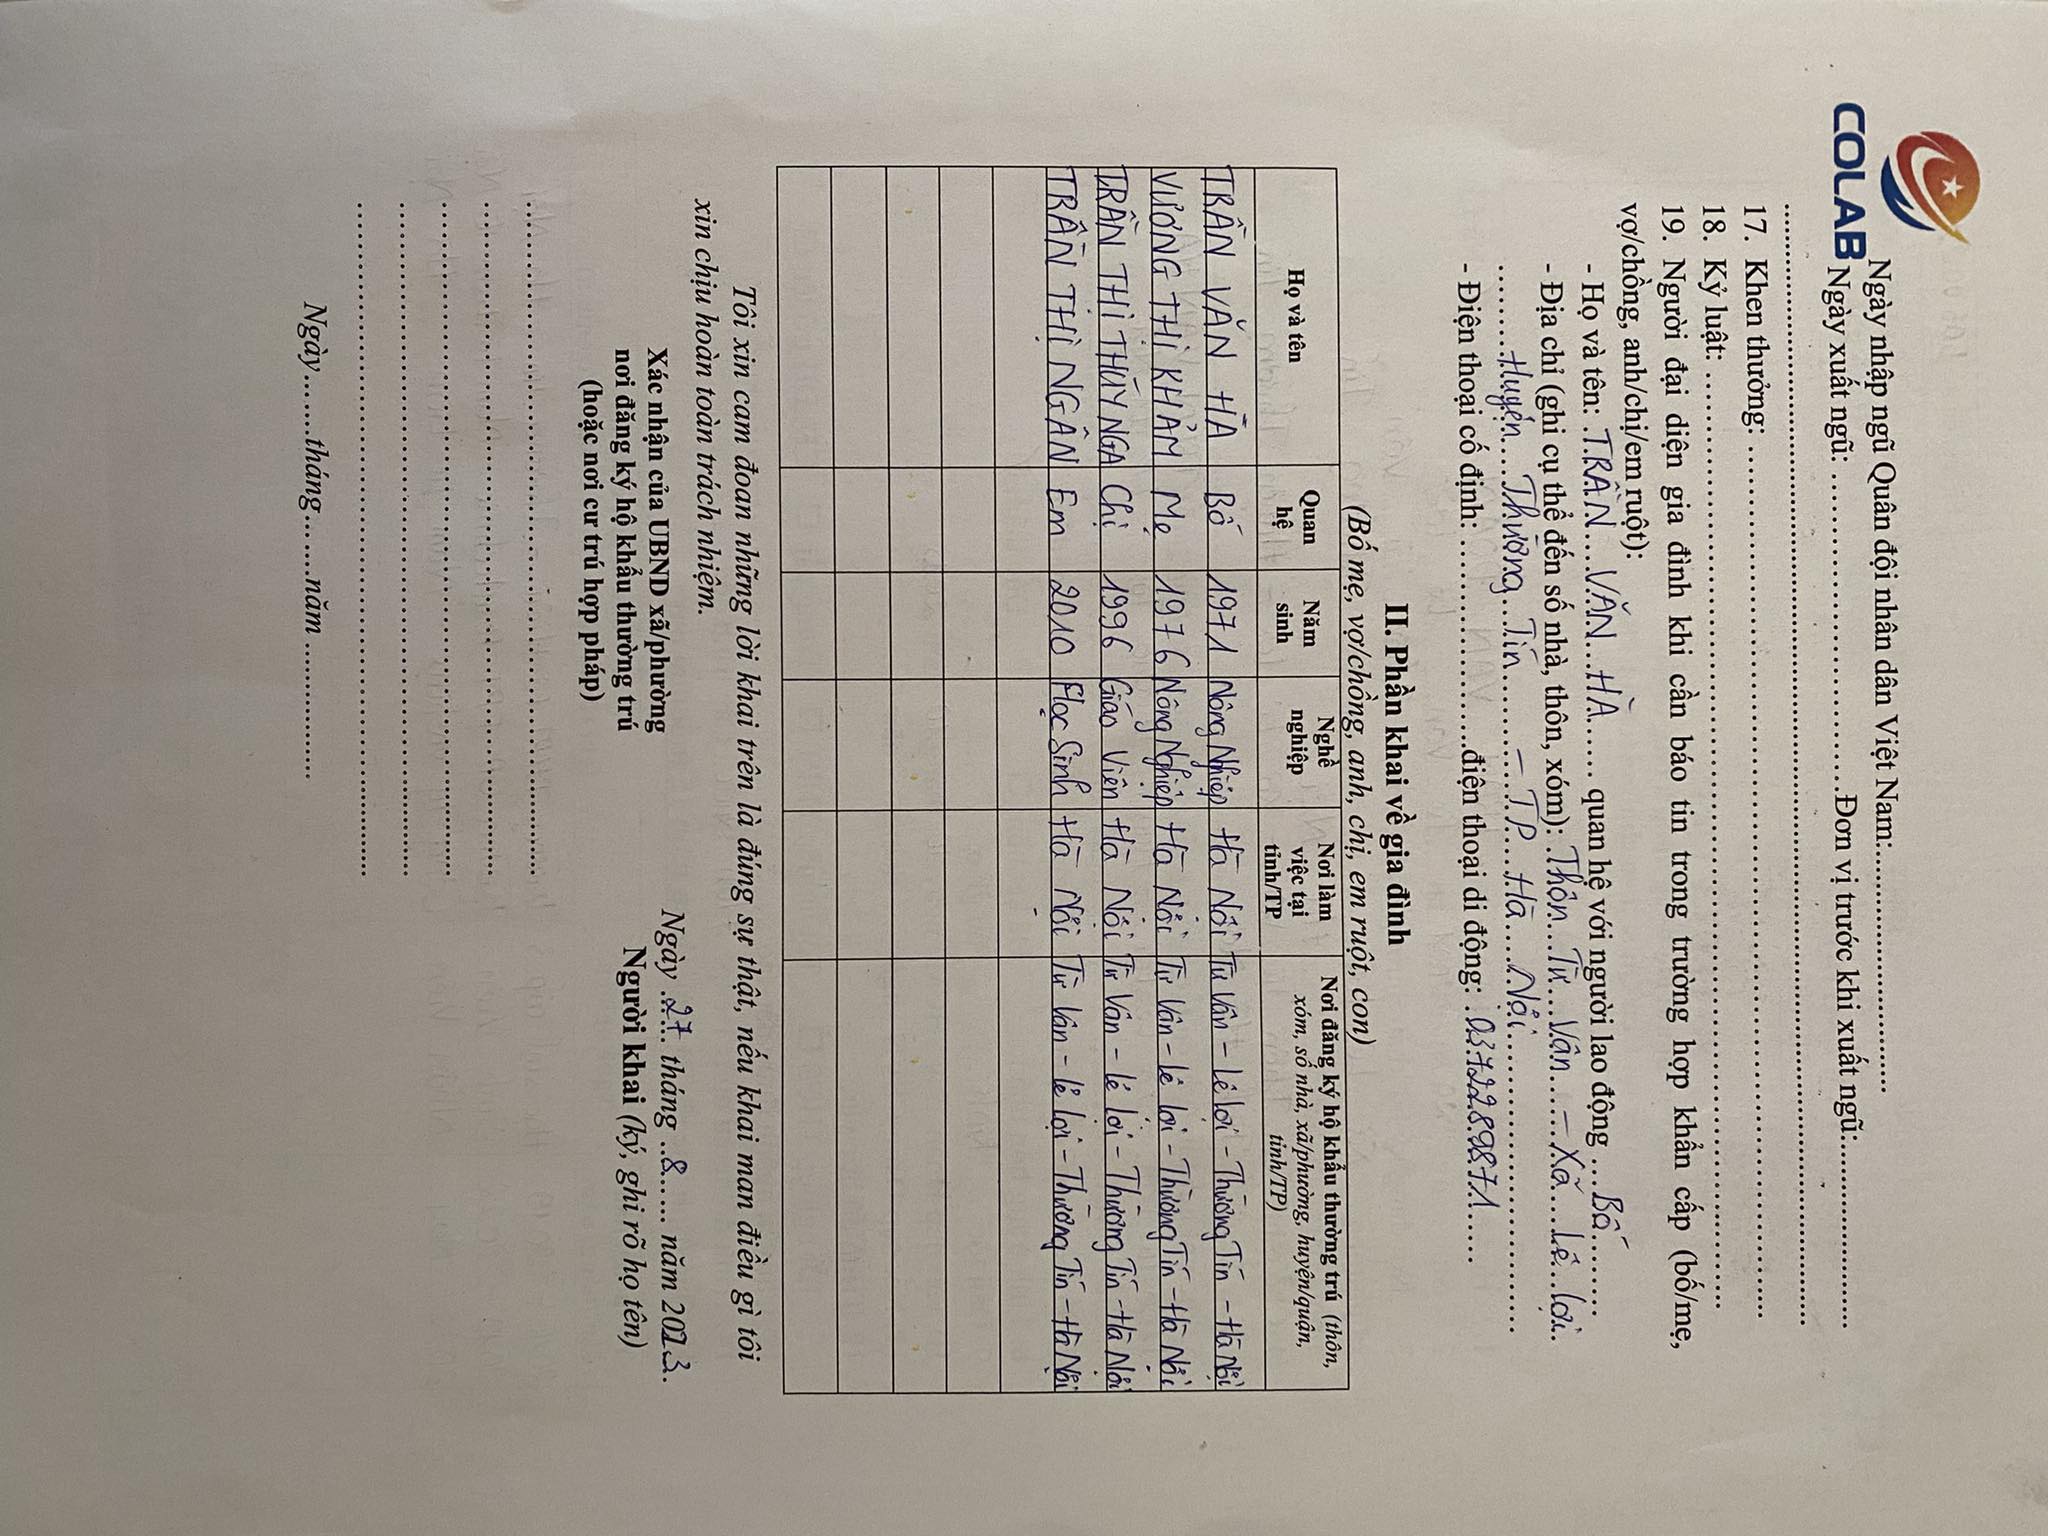 COLAB
Ngày nhập ngũ Quân đội nhân dân Việt Nam:..............................
Ngày xuất ngũ: ..............................Đơn vị trước khi xuất ngũ:..............................
17. Khen thưởng: ..............................
18. Kỷ luật: ..............................
19. Người đại diện gia đình khi cần báo tin trong trường hợp khẩn cấp (bố/mẹ,
vợ/chồng, anh/chị/em ruột):
- Họ và tên: TRẦN VĂN HÀ quan hệ với người lao động Bố
- Địa chỉ (ghi cụ thể đến số nhà, thôn, xóm): Thôn Từ Vân – Xã Lê Lợi
Huyện Thường Tín – TP Hà Nội
- Điện thoại cố định: ..............................điện thoại di động: 0372289871
II. Phần khai về gia đình
(Bố mẹ, vợ/chồng, anh, chị, em ruột, con)
Họ và tên Quan hệ Năm sinh Nghề nghiệp Nơi làm việc tại tỉnh/TP Nơi đăng ký hộ khẩu thường trú (thôn, xóm, số nhà, xã/phường, huyện/quận, tỉnh/TP)
TRẦN VĂN HÀ Bố 1971 Nông Nghiệp Hà Nội Từ Vân - Lê Lợi - Thường Tín - Hà Nội
VƯƠNG THỊ KHẢM Mẹ 1976 Nông Nghiệp Hà Nội Từ Vân - Lê Lợi - Thường Tín - Hà Nội
TRẦN THỊ THÚY NGA Chị 1996 Giáo Viên Hà Nội Từ Vân - Lê Lợi - Thường Tín - Hà Nội
TRẦN THỊ NGÂN Em 2010 Học Sinh Hà Nội Từ Vân - Lê Lợi - Thường Tín - Hà Nội
Tôi xin cam đoan những lời khai trên là đúng sự thật, nếu khai man điều gì tôi
xin chịu hoàn toàn trách nhiệm.
Ngày 27 tháng 8 năm 2023.
Xác nhận của UBND xã/phường
nơi đăng ký hộ khẩu thường trú
(hoặc nơi cư trú hợp pháp)
Người khai (ký, ghi rõ họ tên)
Ngày ......tháng ......năm ..............